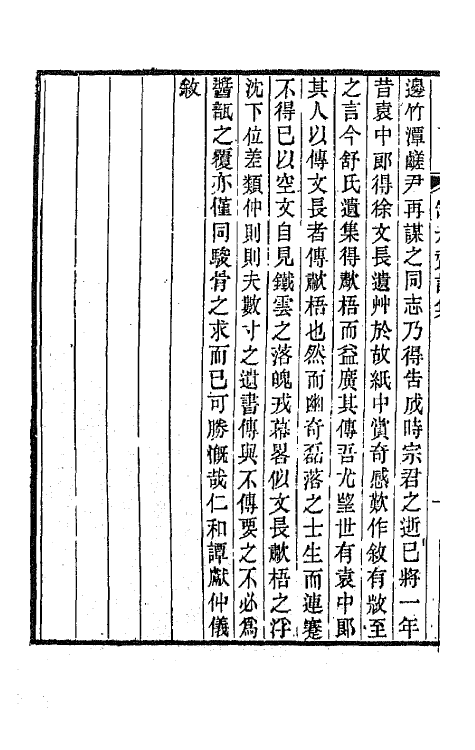 邊竹潭鹺尹再謀之同志乃得告成時宗君之逝已將一年
昔袁中郎得徐文長遺艸於故紙中賞奇感歎作敘有歔至
之言今舒氏遺集得歗梧而益廣其傳吾尤望世有袁中郎
其人以傳文長者傳歗梧也然而幽奇磊落之士生而連蹇
不得已以空文自見鐵雲之落魄戎幕畧似文長歗梧之浮
沈下位差類仲則則夫數寸之遺書傳與不傳要之不必爲
醬瓿之覆亦僅同駿骨之求而已可勝慨哉仁和譚獻仲儀
敘